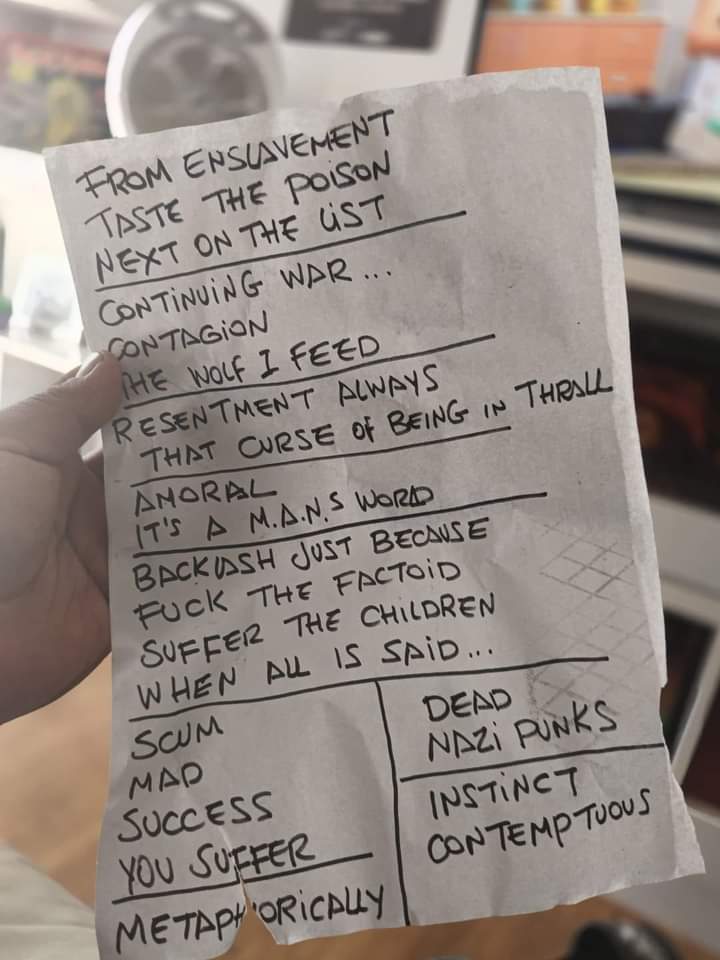 FROM ENSLAVEMENT
TASTE THE POISON
NEXT ON THE LIST
CONTINUING WAR...
CONTAGION
THE WOLF I FEED
RESENTMENT ALWAYS
THAT CURSE OF BEING IN THRALL
AMORAL
IT'S A M.A.N.S WORD
BACKLASH JUST BECAUSE
FUCK THE FACTOID
SUFFER THE CHILDREN
WHEN ALL IS SAID...
SCUM
MAD
SUCCESS
YOU SUFFER
METAPHORICALLY
DEAD
NAZI PUNKS
INSTINCT
CONTEMPTUOUS